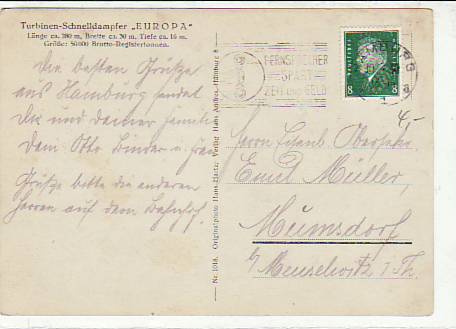 Turbinen-Schnelldampfer „EUROPA"
Länge ca. 280 m, Breite ca. 30 m, Tiefe ca. 16 m.
Größe: 50000 Brutto-Registertonnen.
Die besten Grüße
aus Hamburg sendet
Dir und deiner Familie
Dein Otto Binder u. Frau
Grüße bitte die anderen
Herren auf dem Bahnhof.
Nr. 1018. Originalphoto Hans Hartz. Verlag Hans Andres, Hamburg 8
FERNSPRECHER
SPART
ZEIT UND GELD
8 8
4,-
Herrn Eisenb. Obersekr.
Emil Müller,
Mumsdorf
b/ Meuselwitz i. Th.